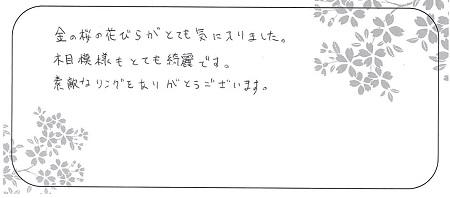 金の桜の花びらがとても気に入りました。
木目模様もとても綺麗です。
素敵なリングをありがとうございます。